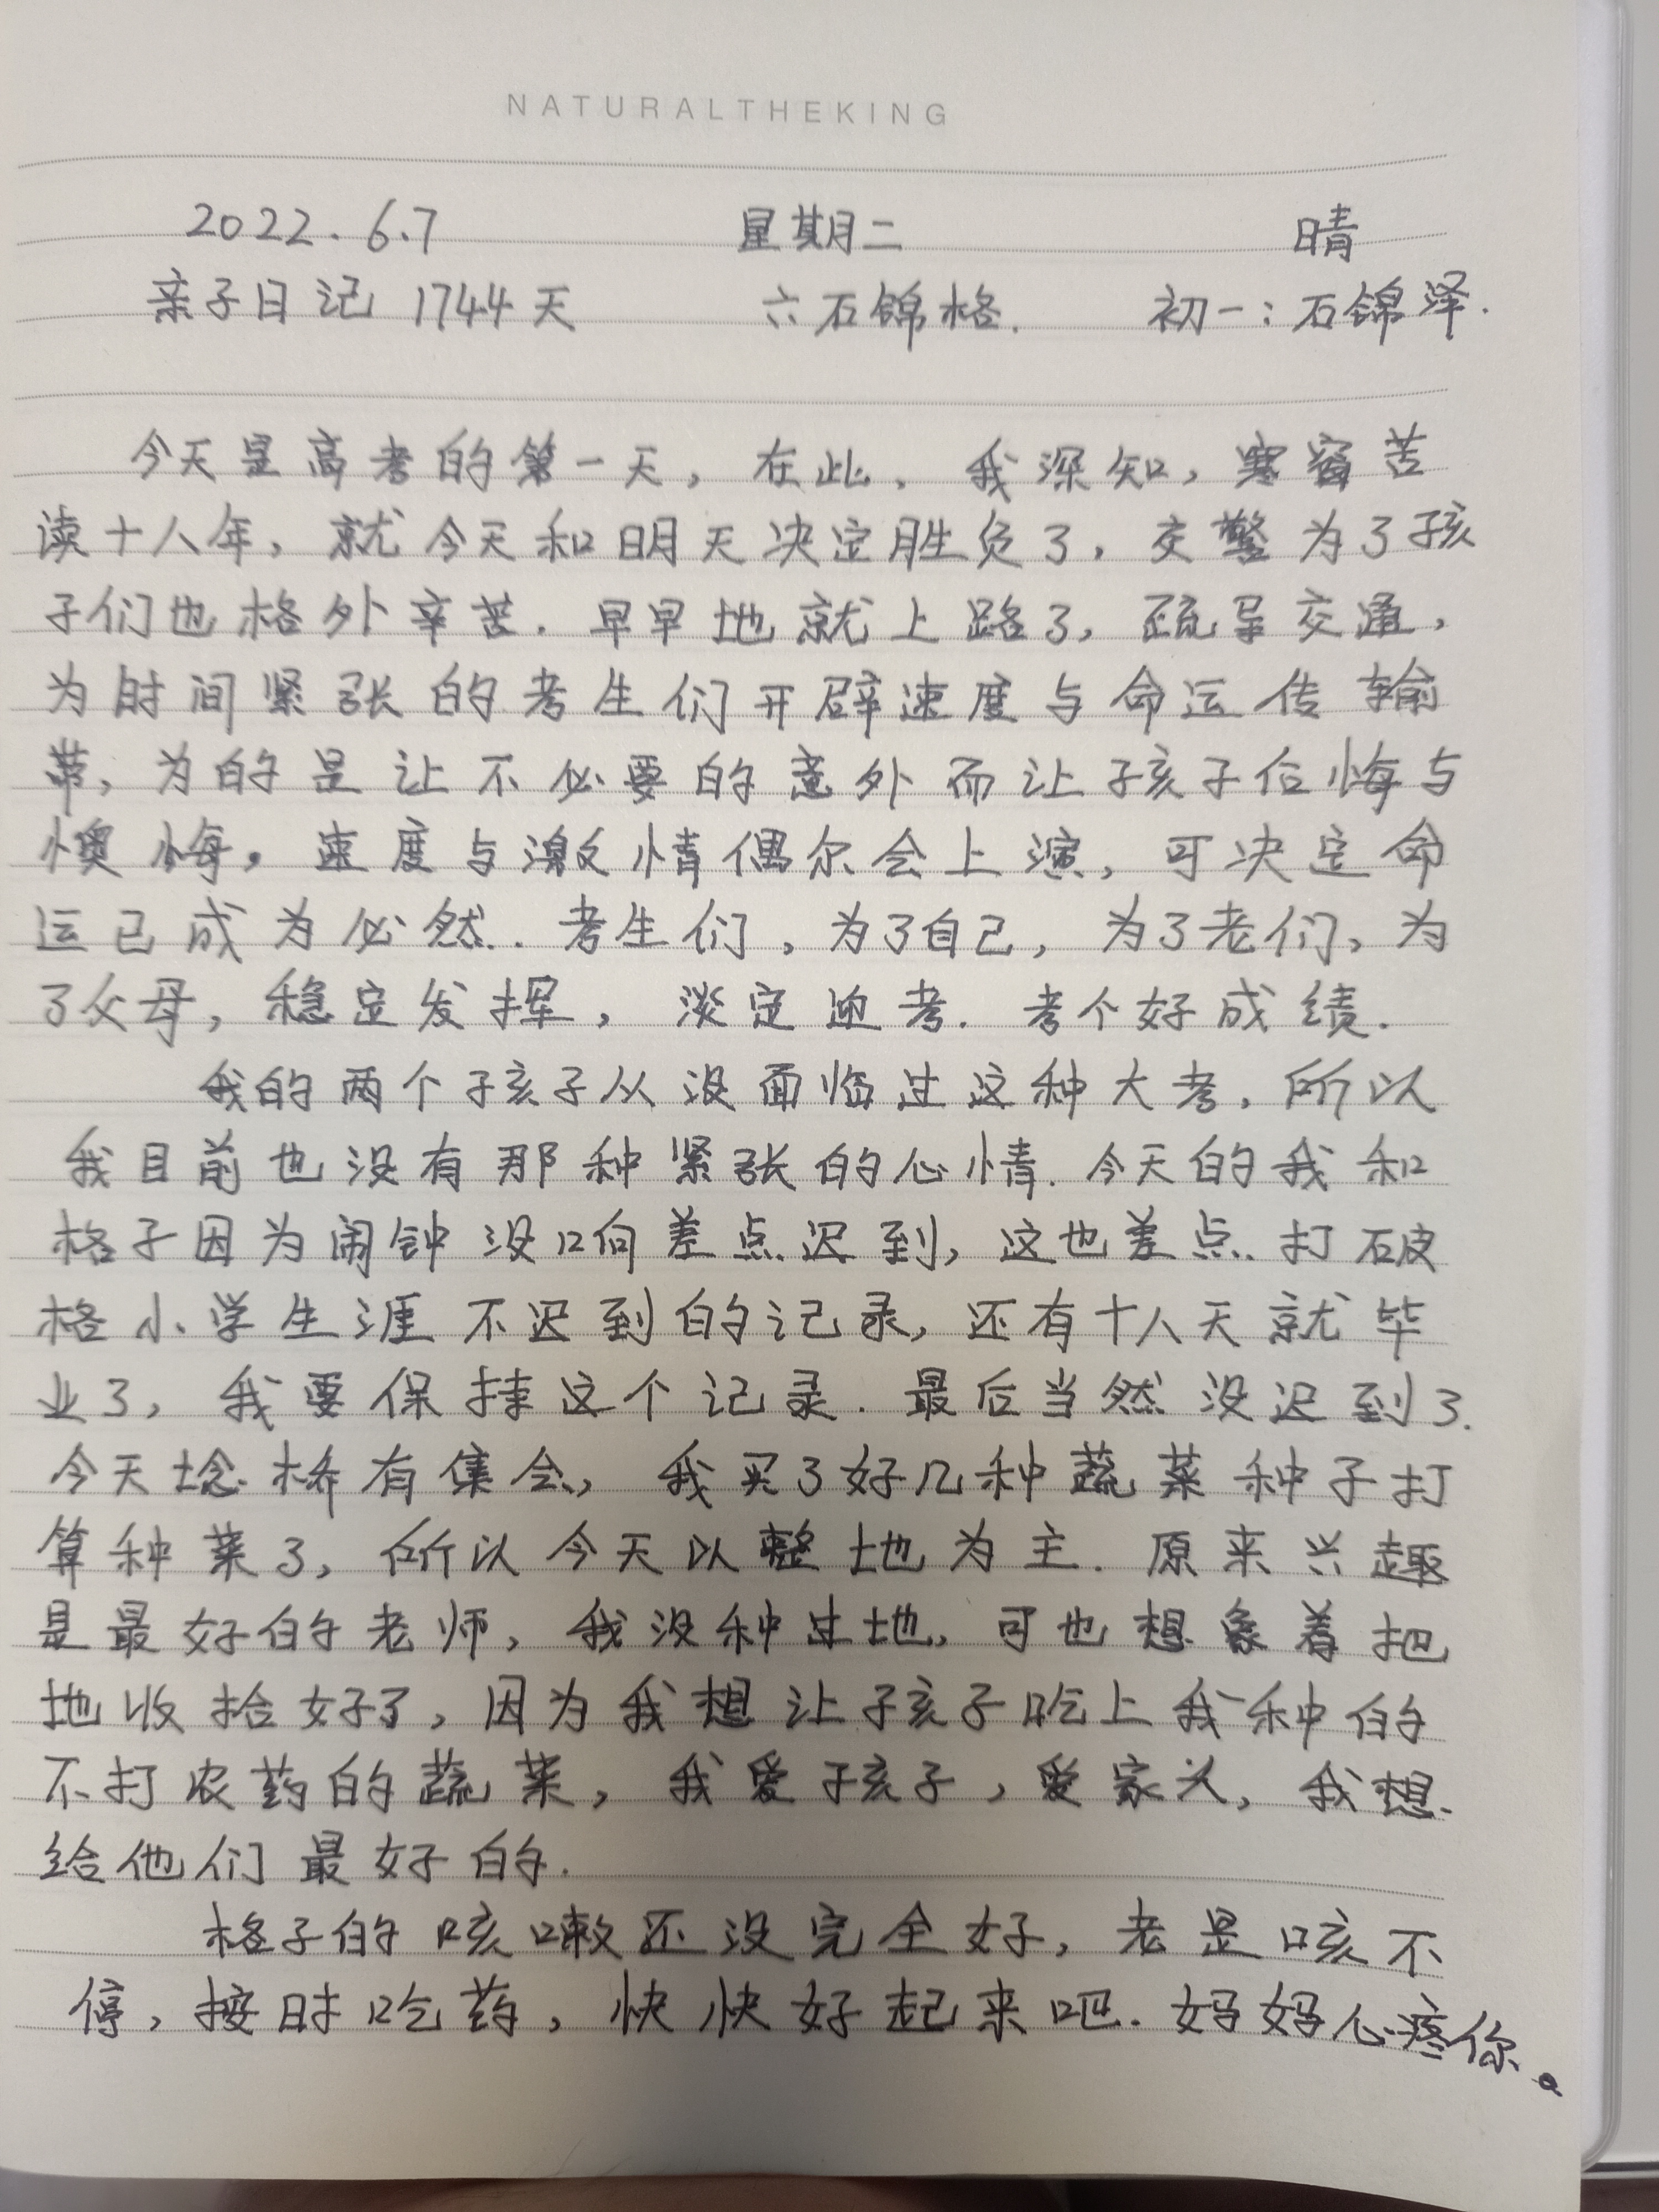 NATURALTHEKING
2022.6.7 星期二 晴
亲子日记 1744天 六石锦格. 初一:石锦泽.
今天是高考的第一天,在此,我深知,寒窗苦
读十八年,就今天和明天决定胜负了,交警为了孩
子们也格外辛苦.早早地就上路了,疏导交通,
为时间紧张的考生们开辟速度与命运传输
带,为的是让不必要的意外而让孩子后悔与
懊悔。速度与激情偶尔会上演,可决定命
运已成为必然.考生们,为了自己,为了老们,为
了父母,稳定发挥,淡定迎考.考个好成绩.
我的两个孩子从没面临过这种大考,所以
我目前也没有那种紧张的心情.今天的我和
格子因为闹钟没响差点迟到,这也差点打破
格小学生涯不迟到的记录,还有十八天就毕
业了,我要保持这个记录.最后当然没迟到了.
今天埝桥有集会,我买了好几种蔬菜种子打
算种菜了,所以今天以整地为主.原来兴趣
是最好的老师,我没种过地,可也想象着把
地收拾好了,因为我想让孩子吃上我种的
不打农药的蔬菜,我爱孩子,爱家人,我想
给他们最好的.
格子的咳嗽还没完全好,老是咳不
停,按时吃药,快快好起来吧.妈妈心疼你。